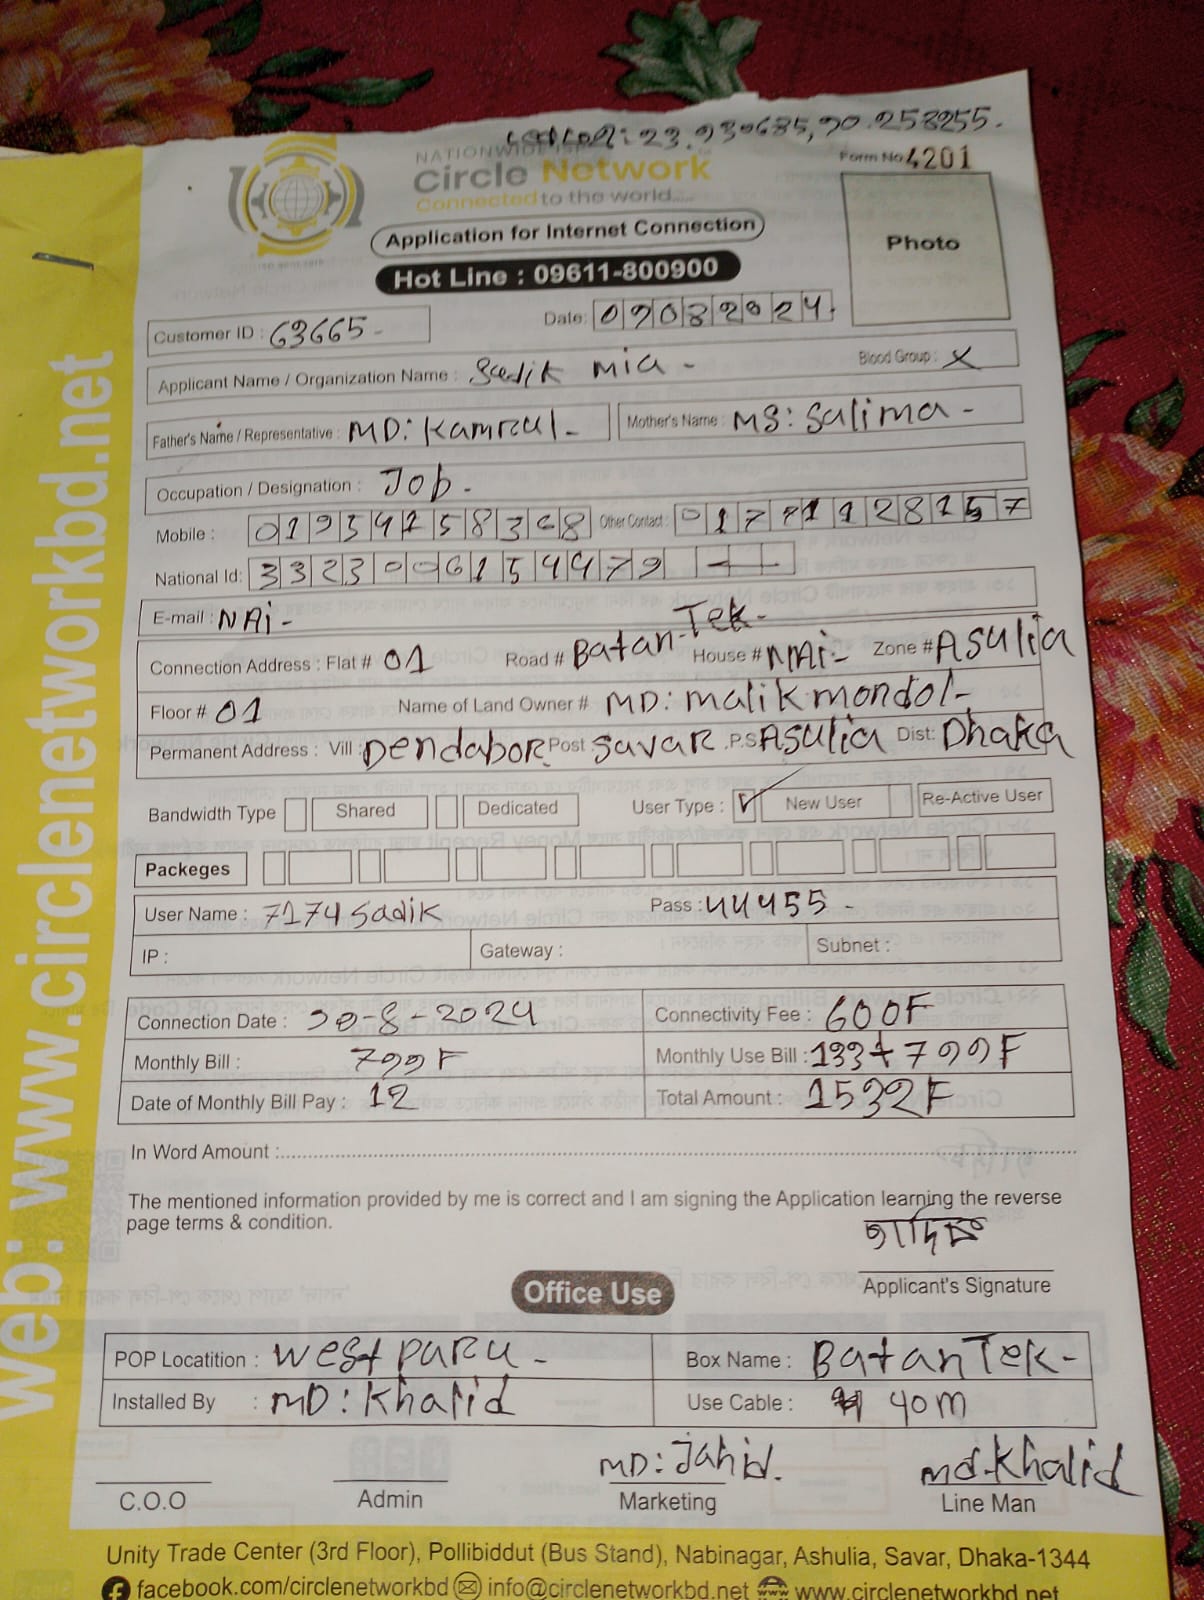 23.930685,90.258255.
NATIONWIDE ISP
Circle Network
Connected to the world.....
Form No 4201
Application for Internet Connection
Photo
Hot Line : 09611-800900
Customer ID : 63665-
Date: 09082024
Applicant Name / Organization Name : Sadik mia - Blood Group : X
Father's Name / Representative : MD: Kamrul - Mother's Name : MS: Salima -
Occupation / Designation : Job -
Mobile : Other Contact :
National Id:
E-mail : NAi -
Connection Address : Flat # 01 Road # Batan-Tek- House # NAi- Zone # Asulia
Floor # 01 Name of Land Owner # MD: malik mondol-
Permanent Address : Vill : Dendabor Post : Savar P.S Asulia Dist: Dhaka
Bandwidth Type Shared Dedicated User Type : New User Re-Active User
Packeges
User Name : 7174Sadik Pass : 44455 -
IP : Gateway : Subnet :
Connection Date : 10-8-2024 Connectivity Fee : 600F
Monthly Bill : 799F Monthly Use Bill : 133+799F
Date of Monthly Bill Pay : 12 Total Amount : 1532F
In Word Amount :
The mentioned information provided by me is correct and I am signing the Application learning the reverse
page terms & condition.
সাদিক
Applicant's Signature
Office Use
POP Locatition : West para - Box Name : Batan Tek-
Installed By : MD: Khalid Use Cable : 40m
MD: Jahid. md.Khalid
C.O.O Admin Marketing Line Man
Unity Trade Center (3rd Floor), Pollibiddut (Bus Stand), Nabinagar, Ashulia, Savar, Dhaka-1344
facebook.com/circlenetworkbd info@circlenetworkbd.net www.circlenetworkbd.net
web: www.circlenetworkbd.net